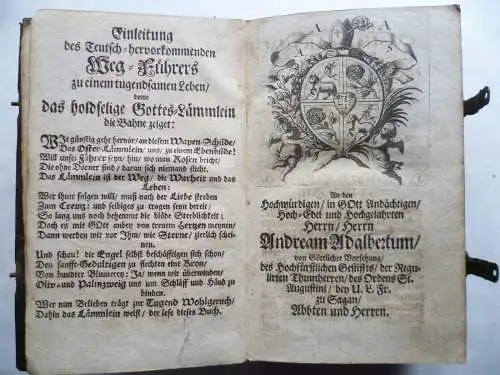 Einleitung
des Teutsch-hervorkommenden
Weg-Führers
zu einem tugendsamen Leben/
deme
das holdselige Gottes-Lämmlein
die Bahne zeiget:
Wie günstig geht hervor/ an diesem Wapen-Schilde/
Das Oster-Lämmlein/ uns/ zu einem Ebenbilde!
Will unser Führer seyn/ hin/ wo man Rosen bricht/
Die ohne Dörner sind/ daran sich niemand sticht.
Das Lämmlein ist der Weg/ die Warheit und das
Leben:
Wer ihme folgen will/ muß nach der Liebe streben
Zum Creutz/ und selbiges zu tragen seyn bereit/
So lang uns noch behemmt die blöde Sterblichkeit;
Doch es mit GOtt anbey von treuem Hertzen meynen/
Dann werden wir vor Ihm/ wie Sterne/ zierlich schei-
nen.
Und schau! die Engel selbst beschäfftigen sich schon/
Den sanfft-Gedultigen zu flechten eine Kron/
Von bundter Blumwerg: Ja/ wenn wir überwinden/
Oliv- und Palmzweig uns um Schläff und Händ zu
binden.
Wer nun Belieben trägt zur Tugend Wohlgeruch/
Dahin das Lämmlein weist/ der lese dieses Buch.
A
A
S
An den
Hochwürdigen/ in GOtt Andächtigen/
Hoch-Edel und Hochgelahrten
Herrn/ Herrn
Andream Adalbertum/
von Göttlicher Vorsehung/
des Hochfürstlichen Gestiffts/ der Regu-
lirten Thumherren/ des Ordens St.
Augustini/ bey U. L. Fr.
zu Sagan/
Abbten und Herren.